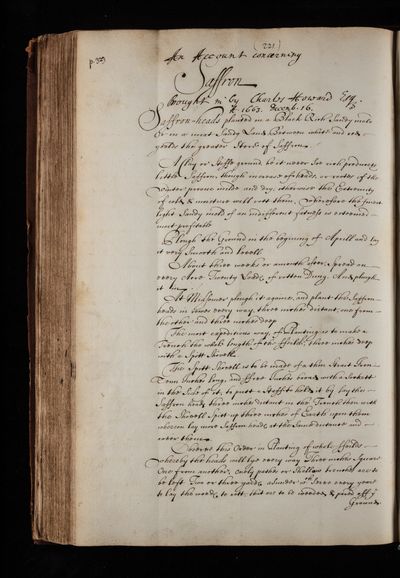 p. 33
(221)
An Account concerning
Saffron
brought in by Charles Howard Esq.
A. 1663. Decemb. 16.
Saffron-heads planted in a Black Rich Sandy mold
Or in a mixt Sandy Land Between white and red
yealds the greatest Store of Saffron.
A Clay or Stiffe ground be it never soe rich produceth
little Saffron, though increase of heads, or rootes if the
Winter proove milde and dry, otherwise the Extremity
of cold & moisture will rott them. Wherefore the finest
light Sandy mold of an indifferent fatness is esteemed
most profitable
Plough the Ground in the begining of Aprill and lay
it very Smooth and levell
About three weekes or a month after, spread on
every Acre Twenty Loads of rotten Dung. And plough
it in
At Midsomer plough it againe, and plant the Saffron
heads in rowes every way three inches distant, one from
the other and three inches deep
The most expeditious way of Planting is to make a
Trench the whole length of the ffeild, three inches deep
with a Spitt Shovell
The Spitt Shovell is to be made of a thin Streit Iron
Tenn Inches long, and ffive Inches broad with a Sockett
in the Side of it, to putt a Staffe to hold it by lay the
Saffron heads three inches distant in the Trench then with
the Shovell Spitt up three inches of Earth upon them
whereon lay more Saffron heads at the same distance and
cover them
Observe this Order in Planting the whole ffeild
whereby the heads will lye every way Three inches Square
One from another, only pathes or Shallow trenches are to
be left Two or three yards asunder wch serve every yeare
to lay the weeds to rott, that are to be weeded & pared off ye
Ground.